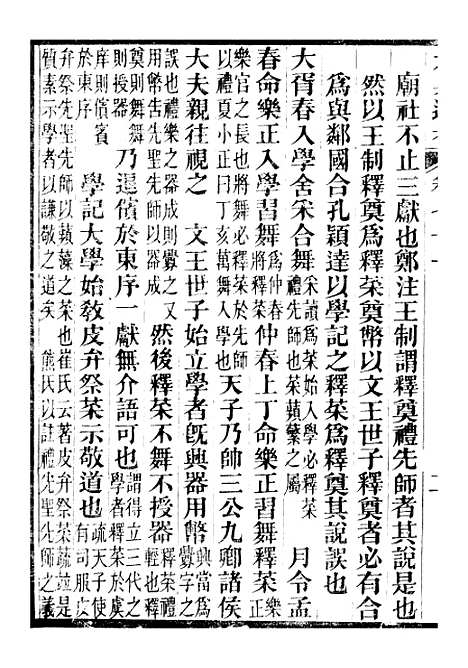 廟社不止三獻也鄭注王制謂釋奠禮先師者其說是也
然以王制釋奠爲釋菜奠幣以文王世子釋奠者必有合
爲與鄰國合孔穎達以學記之釋菜爲釋奠其說誤也
大胥春入學舍采合舞采讀爲菜始入學必釋菜禮先師也菜蘋蘩之屬 月令孟
春命樂正入學習舞爲仲春將釋菜仲春上丁命樂正習舞釋菜樂正
樂官之長也將舞必釋菜於先師以禮夏小正曰丁亥萬舞入學也天子乃帥三公九卿諸侯
大夫親往視之 文王世子始立學者既興器用幣興當爲釁字之
誤也禮樂之器成則釁之又用幣告先聖先師以器成然後釋菜不舞不授器釋菜禮輕也釋
奠則舞舞則授器乃退儐於東序一獻無介語可也謂得立三代之學者釋菜於虞
庠則儐賓於東序 學記大學始教皮弁祭菜示敬道也疏天子使有司服皮
弁祭先聖先師以蘋藻之菜也崔氏云著皮弁祭菜蔬並是
質素示學者以謙敬之道矣 熊氏以註禮先聖先師之義